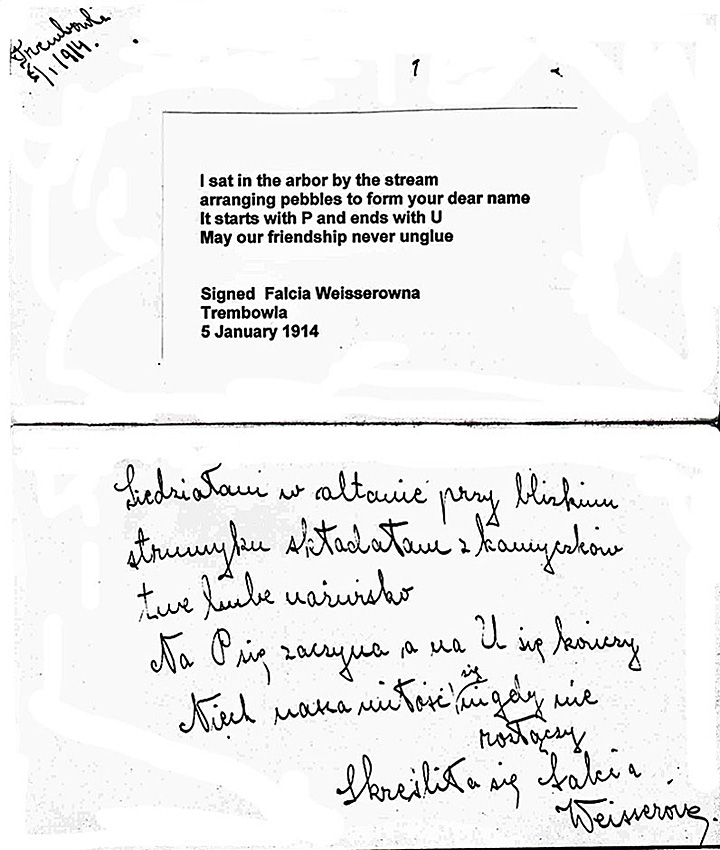 Trembowla
5/I 1914.
I sat in the arbor by the stream
arranging pebbles to form your dear name
It starts with P and ends with U
May our friendship never unglue
Signed Falcia Weisserowna
Trembowla
5 January 1914
Siedziałam w altanie przy blizkim
strumyku składałam z kamyczków
twe lube nazwisko
Na P się zaczyna, a na U się kończy
Niech nasza miłość się nigdy nie
rozłączy
Skreśliła się Falcia